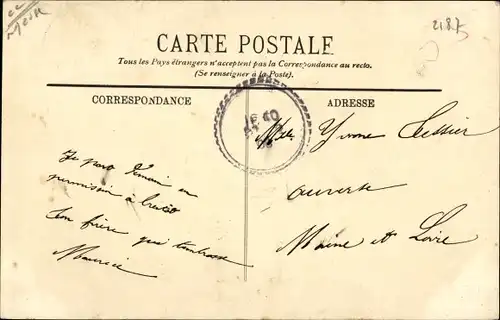 2187
CARTE POSTALE
Tous les Pays étrangers n'acceptent pas la Correspondance au recto.
(Se renseigner à la Poste).
CORRESPONDANCE
ADRESSE
Mlle Yvonne Tessier
Auverse
Maine et Loire
Je pars demain en
permission à
ton frère qui t'embrasse
Maurice